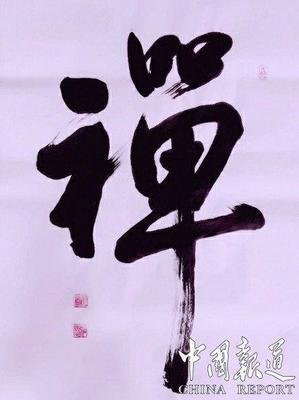 禪
中国報道
CHINA REPORT